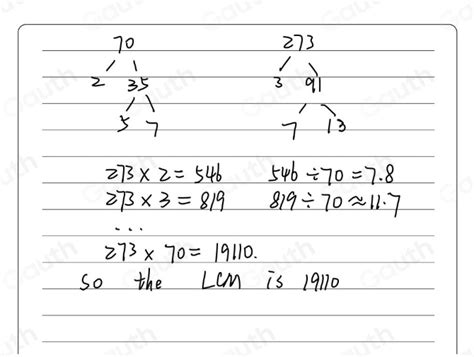 70 273
2 35 3 91
5 7 7 13
273 × 2 = 546 546 ÷ 70 = 7.8
273 × 3 = 819 819 ÷ 70 ≈ 11.7
...
273 × 70 = 19110.
so the LCM is 19110